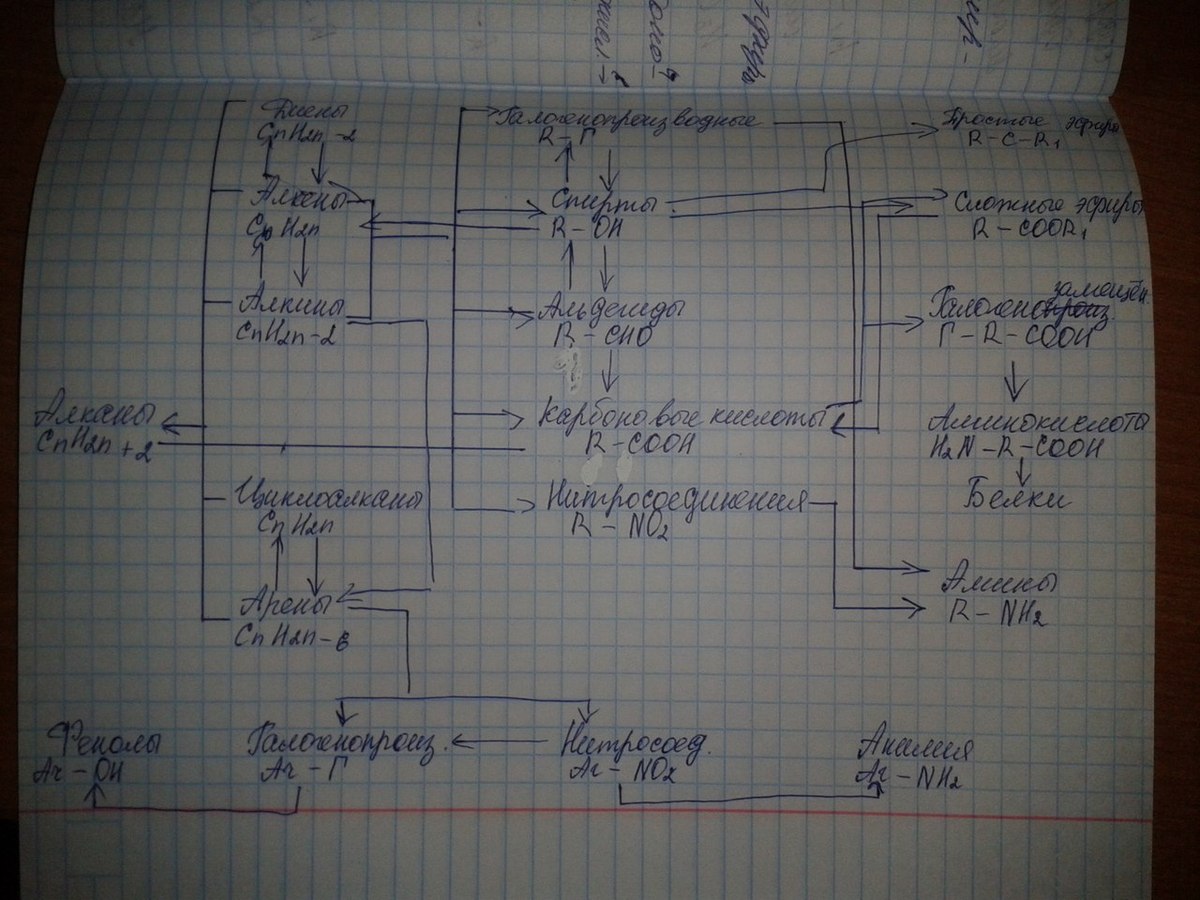 Диены
CnH2n-2
Алкены
CnH2n
Алкины
CnH2n-2
Алканы
CnH2n+2
Циклоалканы
CnH2n
Арены
CnH2n-6
Галогенопроизводные
R-Г
Спирты
R-OH
Альдегиды
R-CHO
Карбоновые кислоты
R-COOH
Нитросоединения
R-NO2
Простые эфиры
R-C-R1
Сложные эфиры
R-COOR1
замещён.
Галогенопроиз
Г-R-COOH
Аминокислота
H2N-R-COOH
Белки
Амины
R-NH2
Фенолы
Ar-OH
Галогенопроиз.
Ar-Г
Нитросоед.
Ar-NO2
Анилия
Ar-NH2